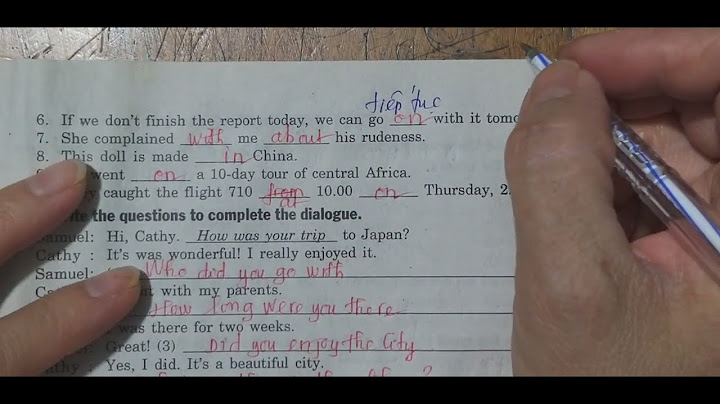 tiếp tục
6. If we don't finish the report today, we can go on with it tomo
7. She complained with me about his rudeness.
8. This doll is made in China.
went on a 10-day tour of central Africa.
caught the flight 710 from at 10.00 on Thursday, 2
the questions to complete the dialogue.
Samuel: Hi, Cathy. How was your trip to Japan?
Cathy : It's was wonderful! I really enjoyed it.
Samuel: Who did you go with
with my parents.
How long were you there
was there for two weeks.
Great! (3) Did you enjoy the City
Yes, I did. It's a beautiful city.